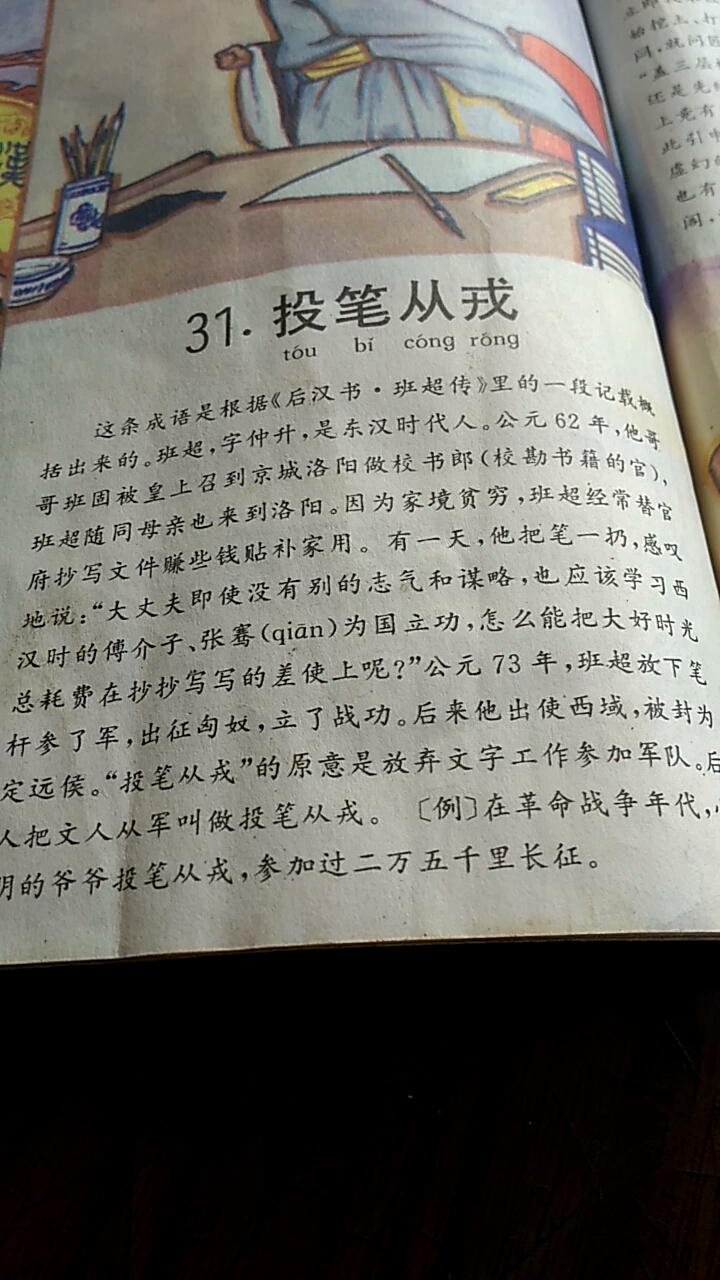 31. 投笔从戎
tóu bǐ cóng róng
这条成语是根据《后汉书·班超传》里的一段记载概
括出来的。班超,字仲升,是东汉时代人。公元 62 年,他哥
哥班固被皇上召到京城洛阳做校书郎(校勘书籍的官),
班超随同母亲也来到洛阳。因为家境贫穷,班超经常替官
府抄写文件赚些钱贴补家用。有一天,他把笔一扔,感叹
地说:“大丈夫即使没有别的志气和谋略,也应该学习西
汉时的傅介子、张骞(qiān)为国立功,怎么能把大好时光
总耗费在抄抄写写的差使上呢?”公元 73 年,班超放下笔
杆参了军,出征匈奴,立了战功。后来他出使西域,被封为
定远侯。“投笔从戎”的原意是放弃文字工作参加军队。后
人把文人从军叫做投笔从戎。〔例〕在革命战争年代,
明的爷爷投笔从戎,参加过二万五千里长征。
始挖土、打
闷,就问
“盖三层
还是先
上竟有
此引申
虚幻的
也有
阁,